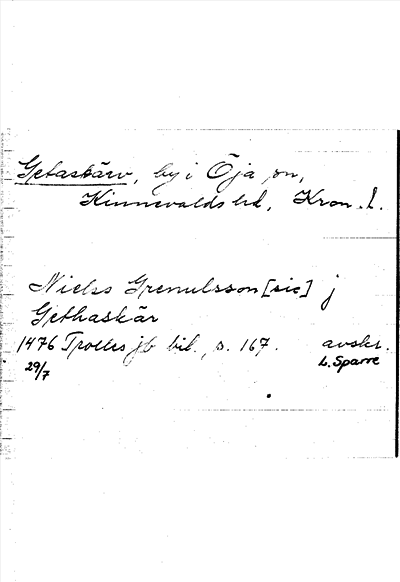 Getaskärv, by i Öja sn,
Kinnevalds hd, Kron. l.
Niels Gremulsson [sic] j
Gethaskär
1476 Trolles jb bil., s. 167. avskr.
29/7 L. Sparre